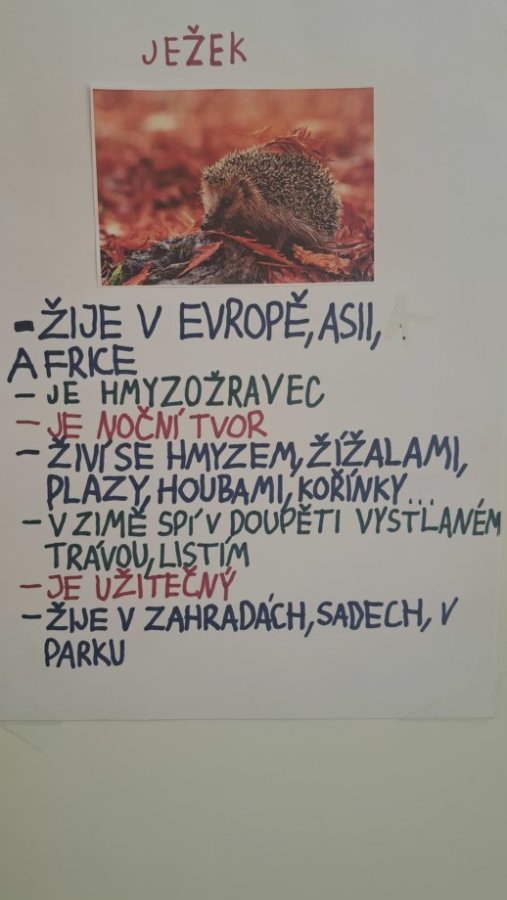 JEŽEK
- ŽIJE V EVROPĚ, ASII,
AFRICE
- JE HMYZOŽRAVEC
- JE NOČNÍ TVOR
- ŽIVÍ SE HMYZEM, ŽÍŽALAMI,
PLAZY, HOUBAMI, KOŘÍNKY...
- V ZIMĚ SPÍ V DOUPĚTI VYSTLANÉM
TRÁVOU, LISTÍM
- JE UŽITEČNÝ
- ŽIJE V ZAHRADÁCH, SADECH, V
PARKU